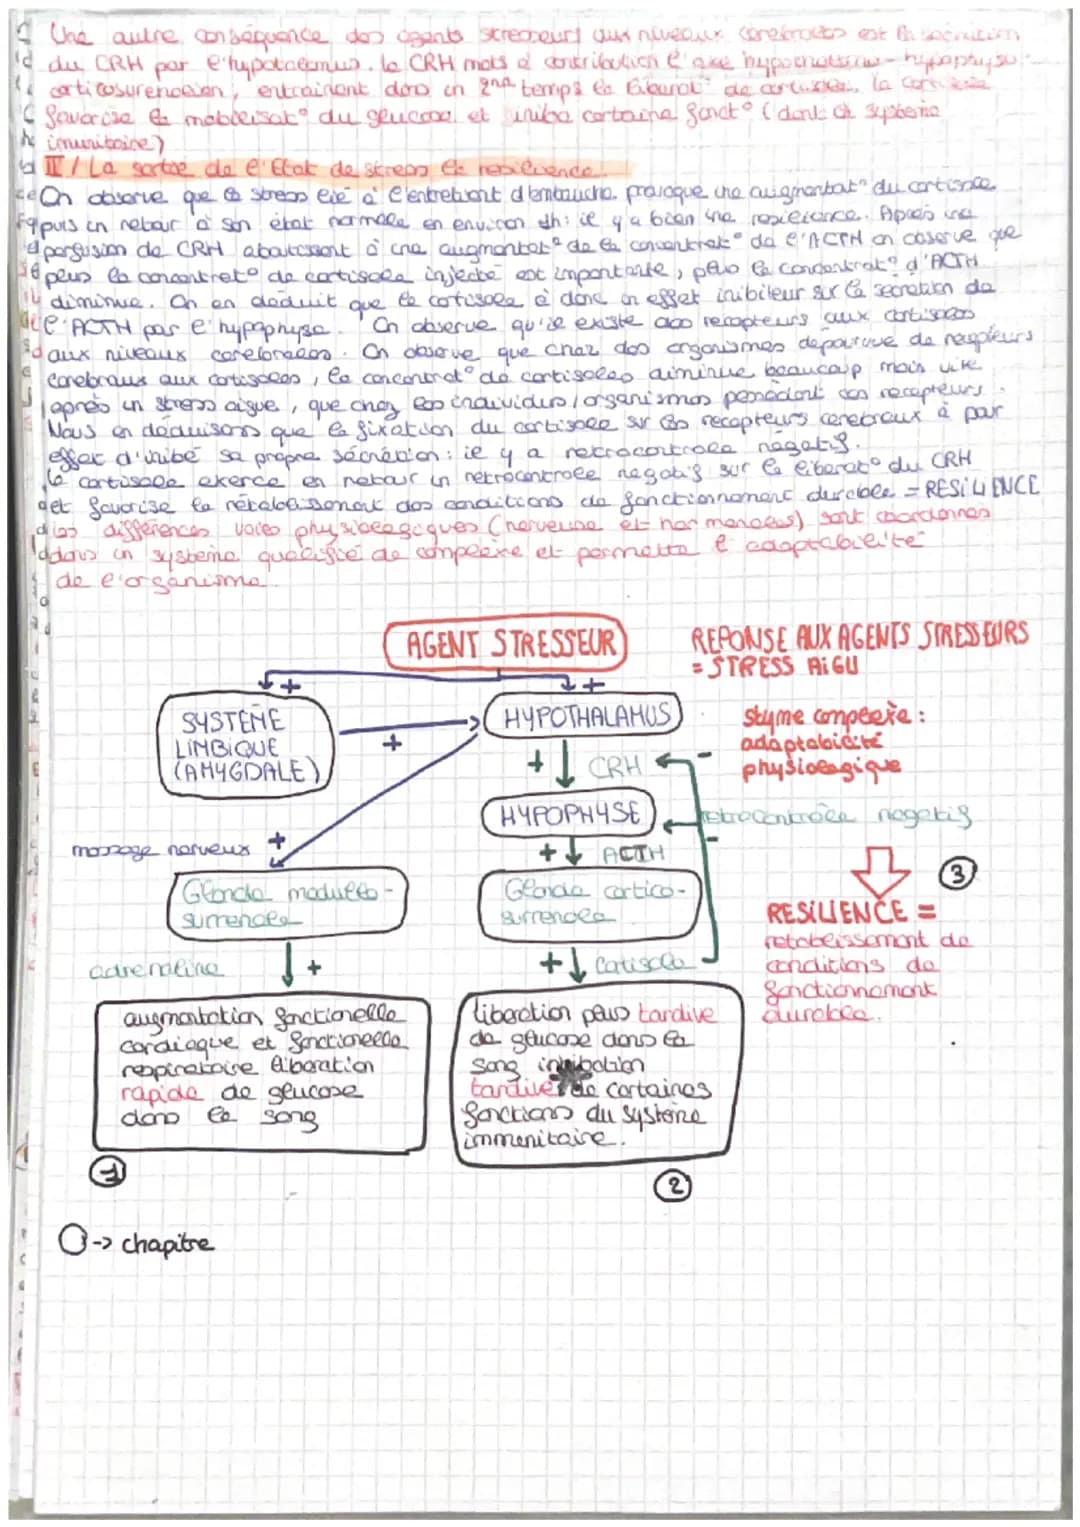 Une autre conséquence des agents stresseurs aux niveaux cérébrales est la sécrétion
du CRH par l'hypotalamus. le CRH mets à contribution l'axe hypothalamo-hypophyso-
corticosurenalien, entrainent dans un 2nd temps la libérat° de cortisole, la cortisole
favorise la mobilisat° du glucose et inibe certaine fonct° (dont le système
imunitaire)
II/ La sortie de l'état de stress la resilience
On observe que le stress lié à l'entretient d'embauche provoque une augmentat° du cortisole
puis un retour à son état normale en environ 1h: il y a bien une resilience. Après une
perfusion de CRH aboutissant à une augmentat° de la concentrat° de l'ACTH on observe que
plus la concentrat° de cortisole injecté est importante, plus la concentrat° d'ACTH
diminue. On en deduit que le cortisole à donc un effet inibiteur sur la secretion de
l'ACTH par l'hypophyse. On observe qu'il existe des recepteurs aux cortisoles
aux niveaux cérébrales. On observe que chez des organismes dépourvue de recepteurs
cerebraux aux cortisoles, la concentrat° de cortisoles diminue beaucoup mois vite
après un stress aigue, que chez les individus/organismes possédant ces recepteurs.
Nous en déduisons que la fixation du cortisole sur ces recepteurs cerebraux à par
effet d'inibé sa propre sécrétion: il y a retrocontrole négatif.
Le cortisole exerce en retour un retrocontrole negatif sur la liberat° du CRH
et favorise le rétablissement des conditions de fonctionnement durable = RESILIENCE
les différences voies physiologiques (nerveuse et hormonales) sont coordonnés
dans un système qualifié de complexe et permette l'adaptabilité
de l'organisme
AGENT STRESSEUR
REPONSE AUX AGENTS STRESSEURS
= STRESS AIGU
+ +
SYSTEME
LIMBIQUE
(AMYGDALE)
+
HYPOTHALAMUS
styme complexe:
adaptabilité
physiologique
+ CRH -
HYPOPHYSE
retrocontrôle negatif
-
message nerveux +
+ ACTH
Glande medullo-
surrenale
Glande cortico-
surrenale
3
RESILIENCE =
retablissement de
conditions de
fonctionnement
durable.
adrenaline +
+ Cortisole
augmentation fonctionelle
cardiaque et fonctionelle
respiratoire libération
rapide de glucose
dans le sang
1
libération plus tardive
de glucose dans le
sang inhibation
tardive de certaines
fonctions du système
immunitaire.
2
O -> chapitre